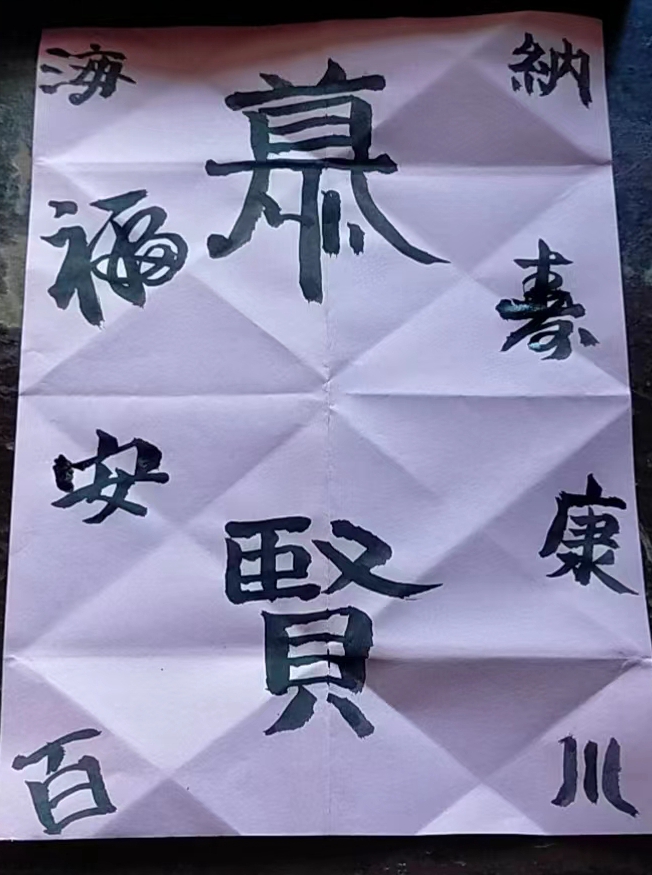 海納
慕
福寿
安康
賢
百川